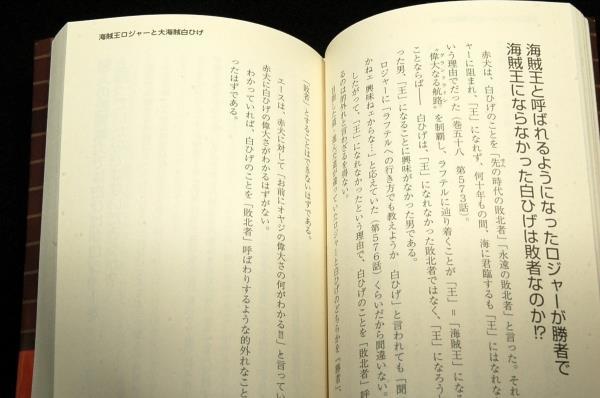 海賊王と呼ばれるようになったロジャーが勝者で
海賊王にならなかった白ひげは敗者なのか!?
赤犬は、白ひげのことを「先の時代の敗北者」「永遠の敗北者」と言った。それ
ーに阻まれ、「王」になれず、何十年もの間、海に君臨するも「王」にはなれな
いう理由でだった(巻五十八 第573話)。
“偉大なる航路”を制覇し、ラフテルに辿り着くことが「王」=「海賊王」にな
ことならば―― 白ひげは、「王」になれなかった敗北者ではなく、「王」になろう
った男、「王」になることに興味がなかった男である。
ロジャーに「ラフテルへの行き方でも教えようか 白ひげ」と言われても「聞
かねェ 興味ねェからな…」と応えていた(第576話)くらいだから間違いない。
したがって、「王」になれなかったという理由で、白ひげのことを「敗北者」呼
るのは的外れと言わざるを得ない。
目指した海、進んだ道が違っていたロジャーと白ひげのどちらかを「勝者」、
「敗者」とすることはできないはずである。
エースは、赤犬に対して「お前にオヤジの偉大さの何がわかる!!」と言ってい
赤犬に白ひげの偉大さがわかるはずがない。
わかっていれば、白ひげのことを「敗北者」呼ばわりするような的外れなこと
ったはずである。
海賊王ロジャーと大海賊白ひげ